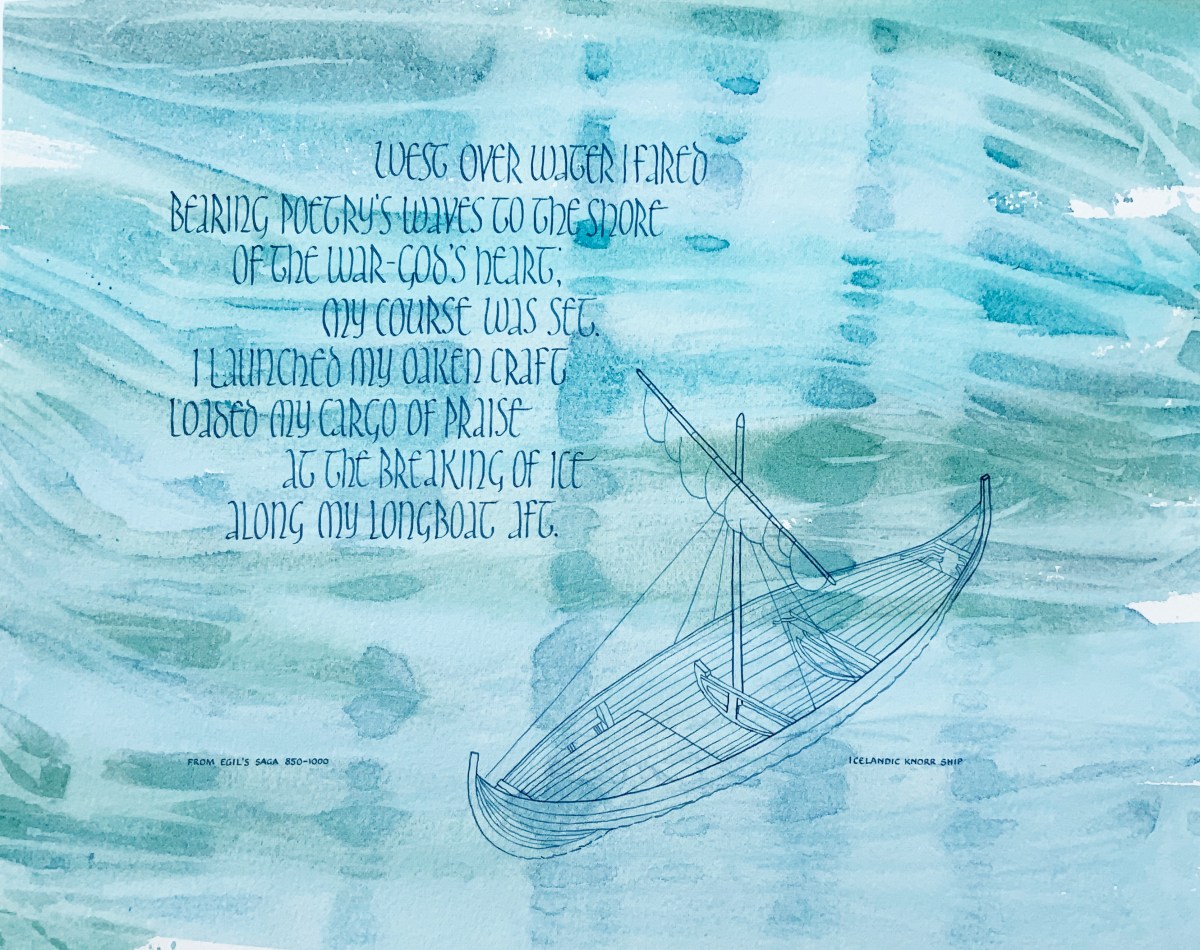 WEST OVER WATER I FARED
BEARING POETRY'S WAVES TO THE SHORE
OF THE WAR-GOD'S HEART;
MY COURSE WAS SET.
I LAUNCHED MY OAKEN CRAFT
LOADED MY CARGO OF PRAISE
AT THE BREAKING OF ICE
ALONG MY LONGBOAT AFT.
FROM EGIL'S SAGA 850-1000
ICELANDIC KNORR SHIP